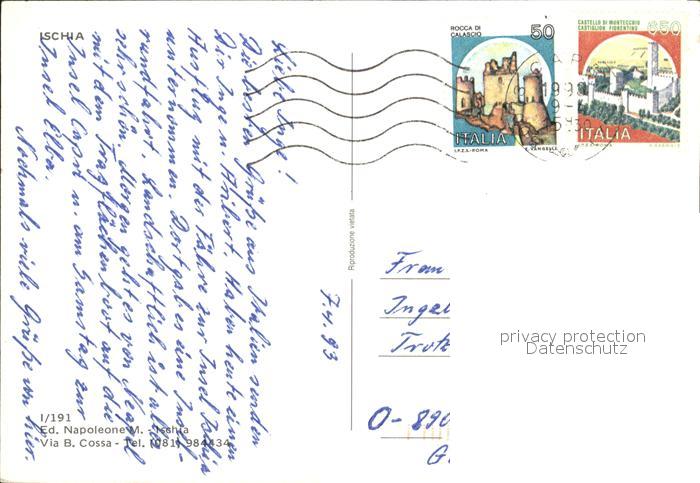 ISCHIA
ROCCA DI
CALASCIO
50
ITALIA
I.P.Z.S.-ROMA
CASTELLO DI MONTECCHIO
CASTIGLION FIORENTINO
650
ITALIA
Liebe Inge!
Die besten Grüße aus Italien senden
Dir Inge u. Haben heute einen
Ausflug mit der Fähre zur Insel Ischia
unternommen. Dort gab es eine Insel-
rundfahrt. Landschaftlich ist alles
sehr schön. Morgen geht es von Neapel
mit dem Tragflächenboot auf die
Insel Capri u. am Samstag zur
Insel Elba.
Nochmals viele Grüße von hier.
7.4.93
Riproduzione vietata
Frau
Inge
O-890
G
privacy protection
Datenschutz
I/191
Ed. Napoleone M. - Ischia
Via B. Cossa - Tel. (081) 984434